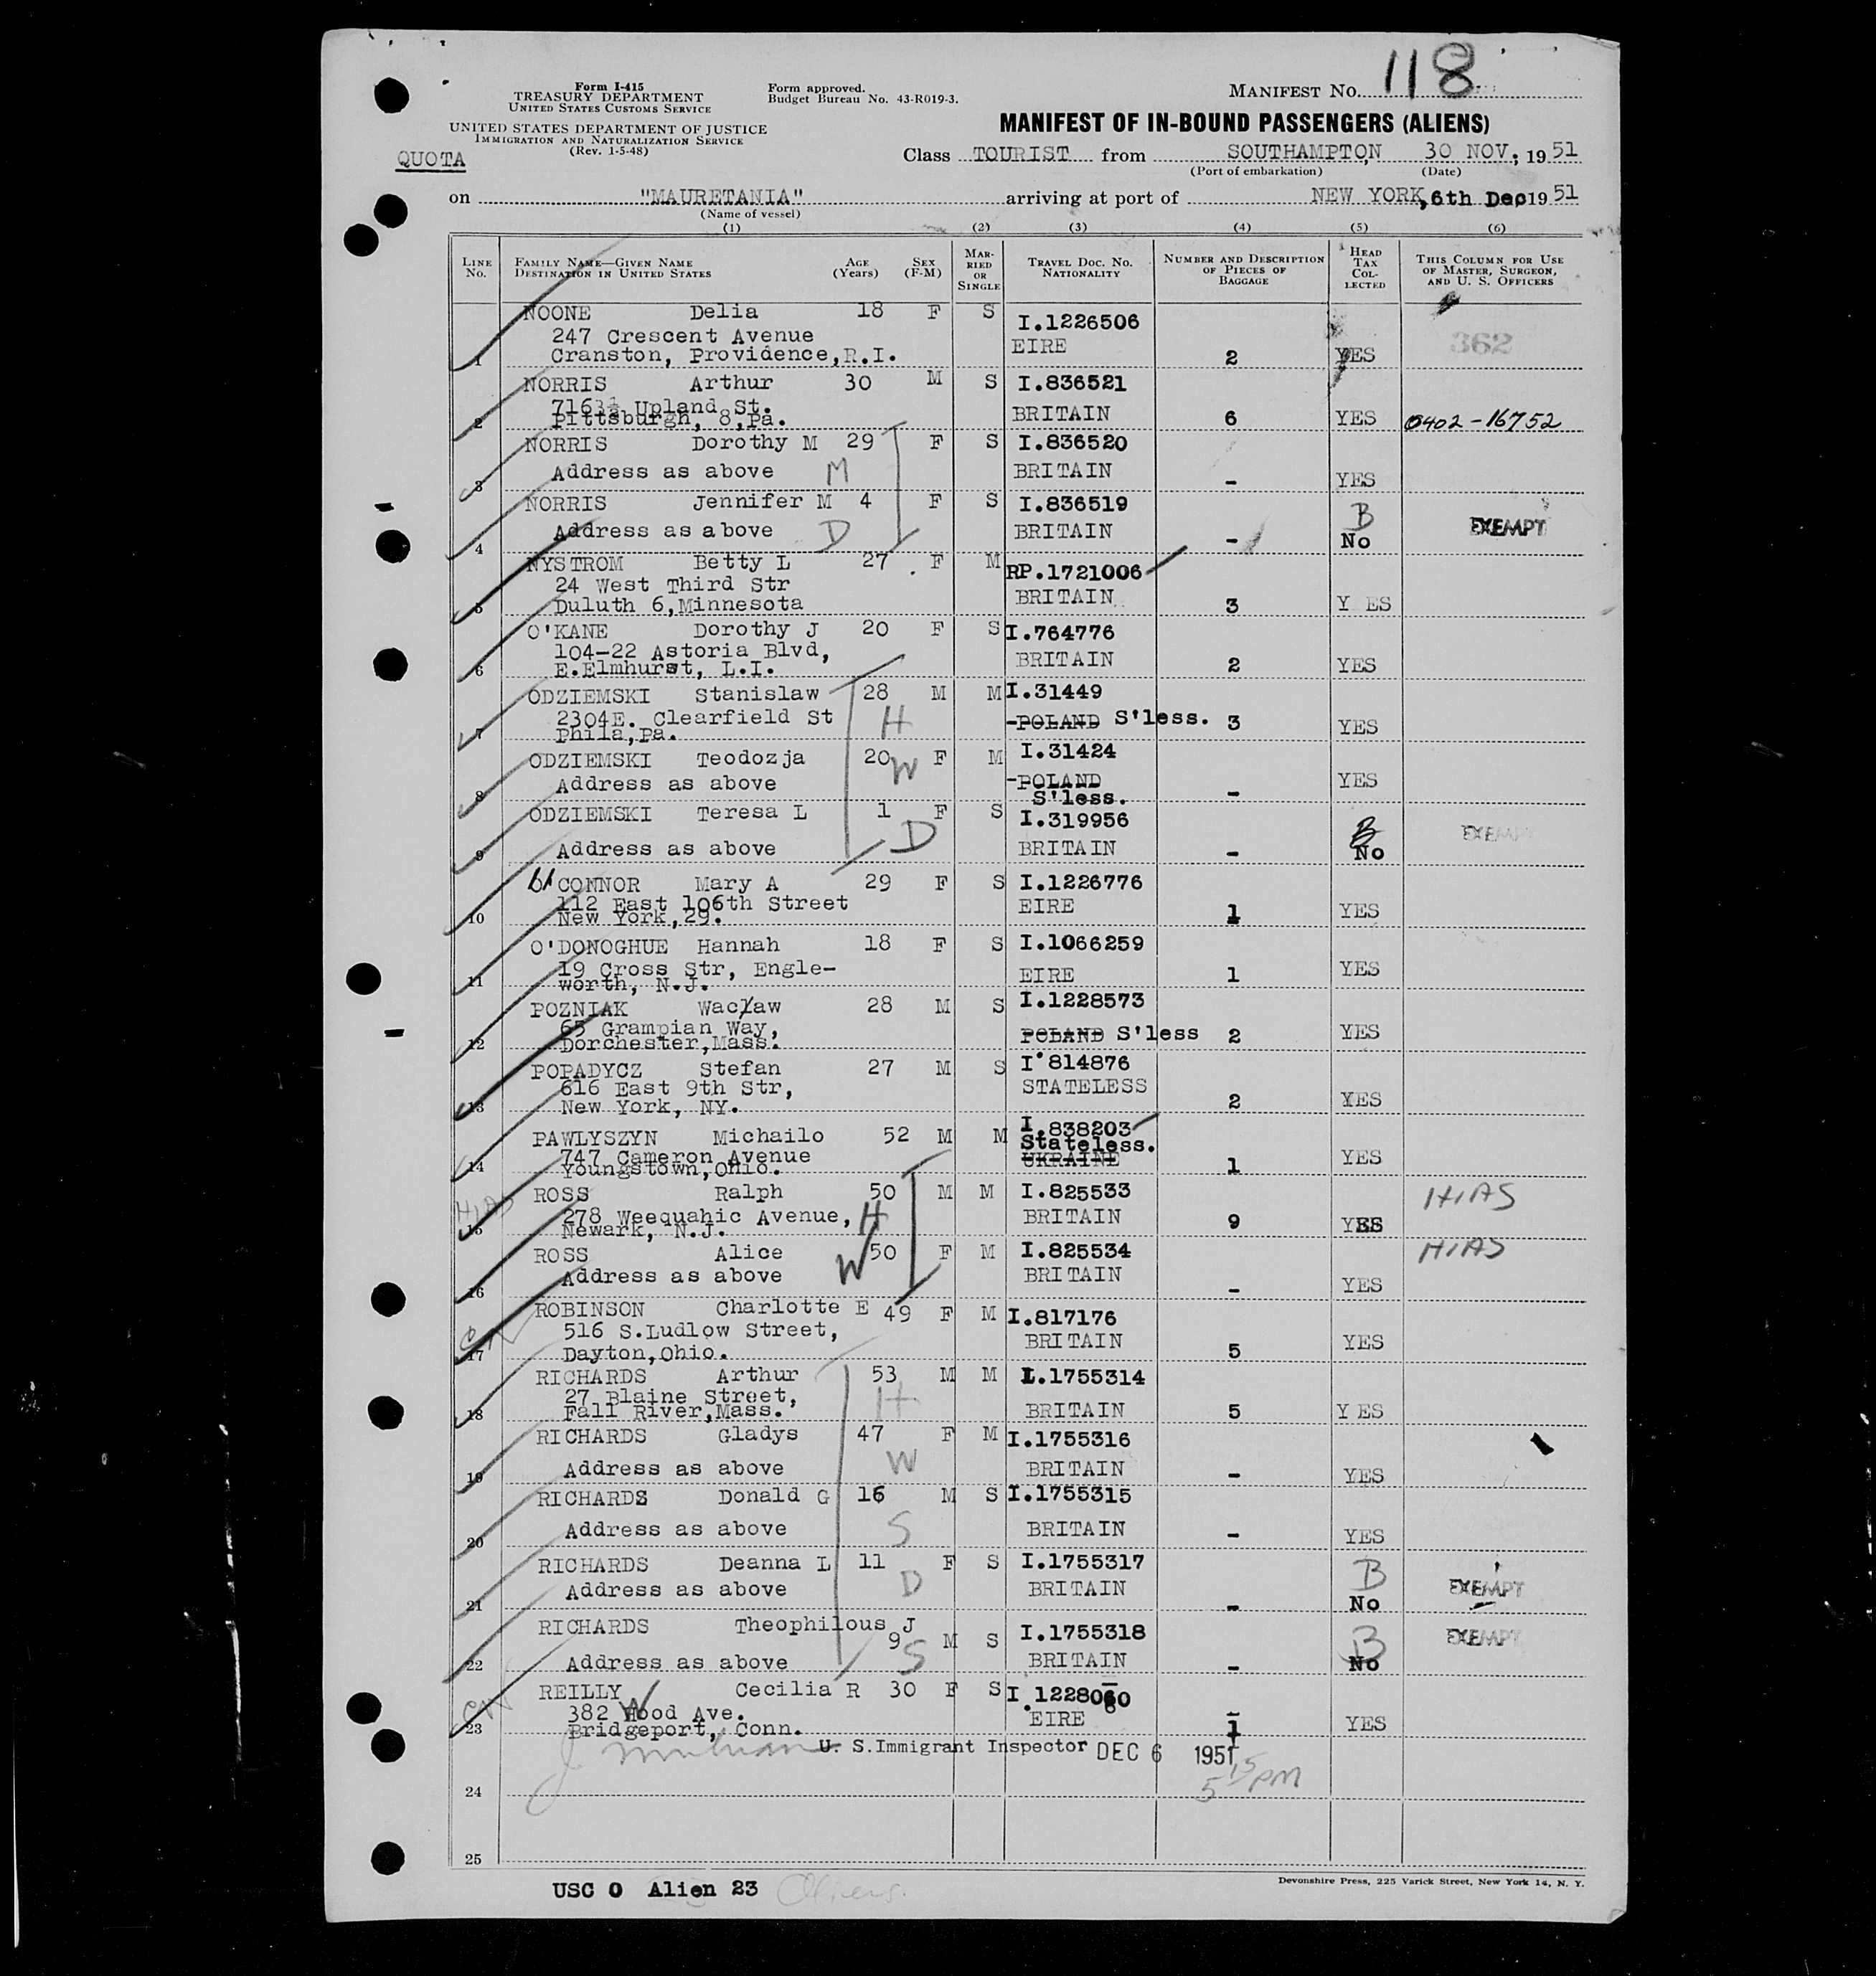 118
Form I-415
TREASURY DEPARTMENT
UNITED STATES CUSTOMS SERVICE
Form approved.
Budget Bureau No. 43-R019-3.
MANIFEST NO.
UNITED STATES DEPARTMENT OF JUSTICE
IMMIGRATION AND NATURALIZATION SERVICE
(Rev. 1-5-48)
MANIFEST OF IN-BOUND PASSENGERS (ALIENS)
QUOTA
Class TOURIST from SOUTHAMPTON, 30 NOV; 1951
(Port of embarkation) (Date)
on "MAURETANIA" arriving at port of NEW YORK, 6th Dec, 1951
(Name of vessel)
(1) (2) (3) (4) (5) (6)
LINE NO. FAMILY NAME—GIVEN NAME DESTINATION IN UNITED STATES AGE (YEARS) SEX (F-M) MARRIED OR SINGLE TRAVEL DOC. NO. NATIONALITY NUMBER AND DESCRIPTION OF PIECES OF BAGGAGE HEAD TAX COLLECTED THIS COLUMN FOR USE OF MASTER, SURGEON, AND U. S. OFFICERS
NOONE Delia 18 F S I.1226506
247 Crescent Avenue EIRE 362
1 Cranston, Providence, R.I. 2 YES
NORRIS Arthur 30 M S I.836521
7163½ Upland St. BRITAIN
2 Pittsburgh, 8, Pa. 6 YES 0402-16752
NORRIS Dorothy M 29 F S I.836520
3 Address as above M BRITAIN - YES
NORRIS Jennifer M 4 F S I.836519
4 Address as above D BRITAIN - B No EXEMPT
NYSTROM Betty L 27 F M RP.1721006
24 West Third Str BRITAIN
5 Duluth 6, Minnesota 3 Y ES
O'KANE Dorothy J 20 F S I.764776
104-22 Astoria Blvd, BRITAIN
6 E.Elmhurst, L.I. 2 YES
ODZIEMSKI Stanislaw 28 M M I.31449
2304E. Clearfield St H POLAND S'less. 3
7 Phila, Pa. YES
ODZIEMSKI Teodozja 20 W F M I.31424
8 Address as above POLAND S'less. - YES
ODZIEMSKI Teresa L 1 F S I.319956
9 Address as above D BRITAIN - B No EXEMPT
O'CONNOR Mary A 29 F S I.1226776
112 East 106th Street EIRE
10 New York, 29. 1 YES
O'DONOGHUE Hannah 18 F S I.1066259
19 Cross Str, Engle-
11 worth, N.J. EIRE 1 YES
POZNIAK Waclaw 28 M S I.1228573
65 Grampian Way, POLAND S'less 2 YES
12 Dorchester, Mass.
POPADYCZ Stefan 27 M S I.814876
616 East 9th Str, STATELESS
13 New York, NY. 2 YES
PAWLYSZYN Michailo 52 M M I.838203
747 Cameron Avenue Stateless. UKRAINE
14 Youngstown, Ohio. 1 YES
ROSS Ralph 50 M M I.825533 HIAS
HIAS 278 Weequahic Avenue, H BRITAIN
15 Newark, N.J. 9 YES
ROSS Alice W 50 F M I.825534 HIAS
16 Address as above BRITAIN - YES
ROBINSON Charlotte E 49 F M I.817176
516 S.Ludlow Street, BRITAIN
17 Dayton, Ohio. 5 YES
RICHARDS Arthur 53 M M I.1755314
27 Blaine Street, H
18 Fall River, Mass. BRITAIN 5 Y ES
RICHARDS Gladys 47 F M I.1755316
19 Address as above W BRITAIN - YES
RICHARDS Donald G 16 M S I.1755315
20 Address as above S BRITAIN - YES
RICHARDS Deanna L 11 F S I.1755317
21 Address as above D BRITAIN - B No EXEMPT
RICHARDS Theophilous J 9 M S I.1755318
22 Address as above S BRITAIN - B No EXEMPT
REILLY Cecilia R 30 F S I.1228060
382 Wood Ave. EIRE
23 Bridgeport, Conn. 1 YES
U. S. Immigrant Inspector DEC 6 1951
5 15 PM
24
25
USC 0 Alien 23
Devonshire Press, 225 Varick Street, New York 14, N. Y.